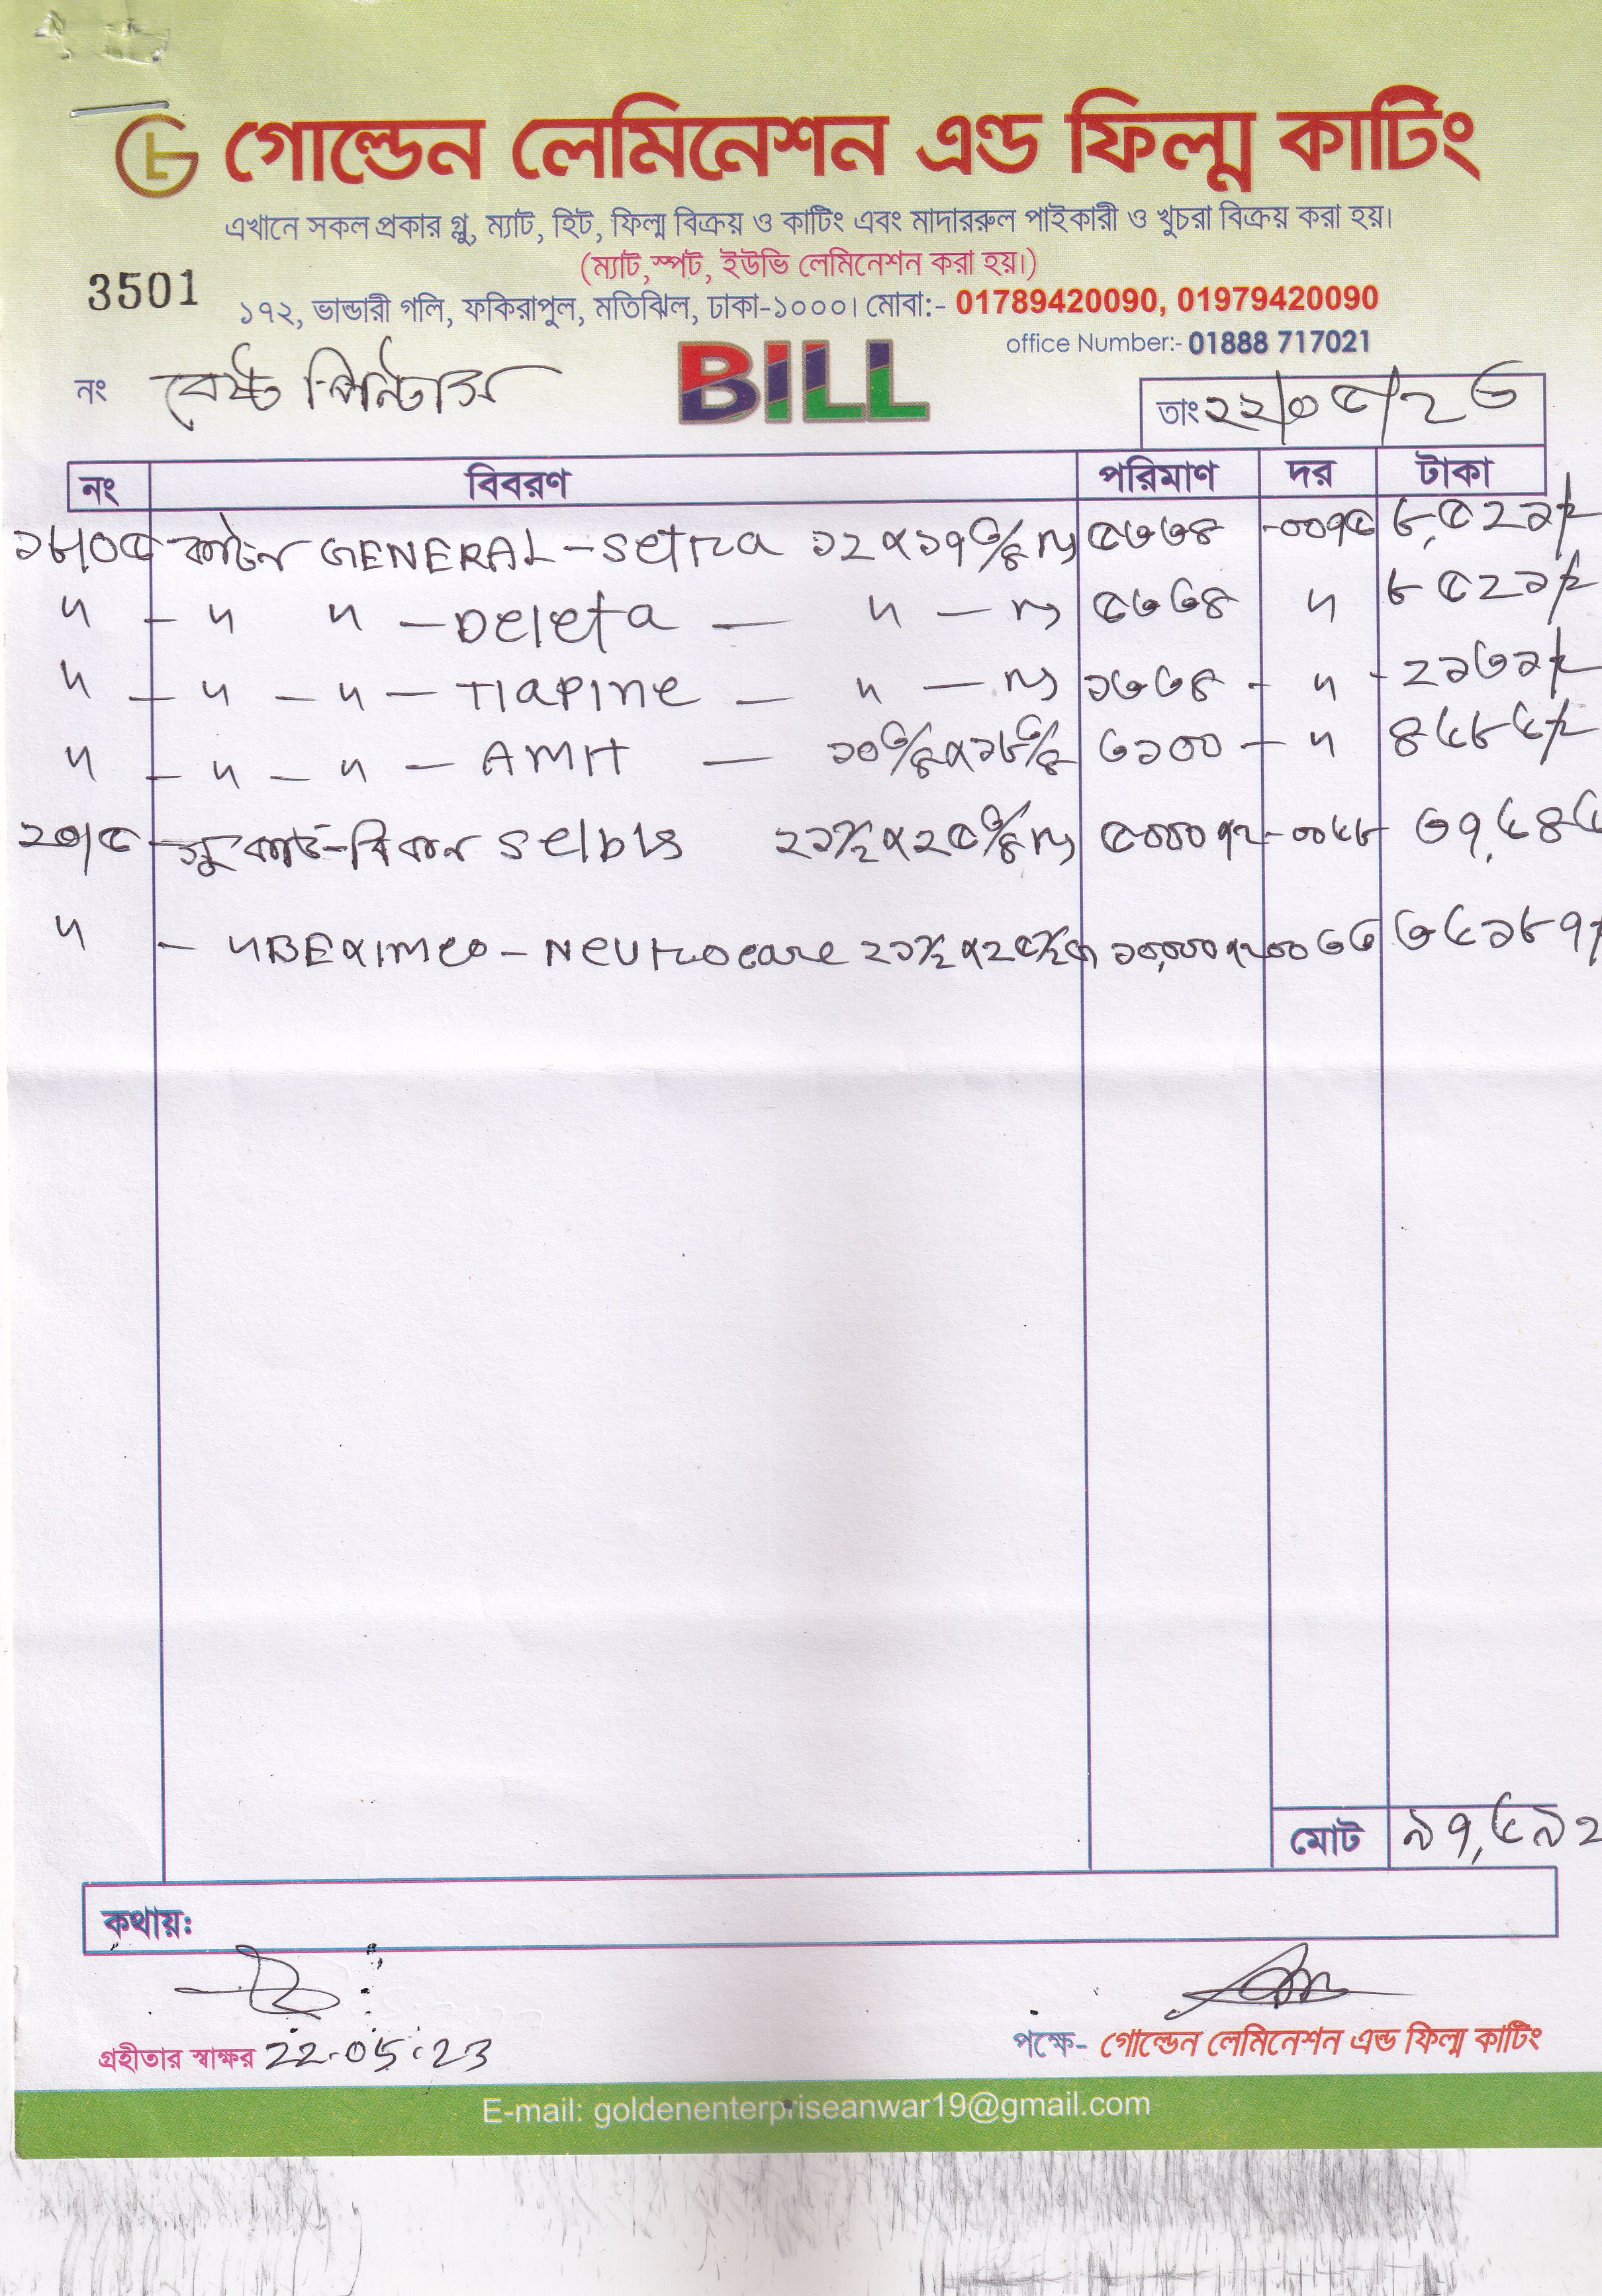 গোল্ডেন লেমিনেশন এন্ড ফিল্ম কাটিং
এখানে সকল প্রকার গ্লু, ম্যাট, হিট, ফিল্ম বিক্রয় ও কাটিং এবং মাদাররুল পাইকারী ও খুচরা বিক্রয় করা হয়।
(ম্যাট,স্পট, ইউভি লেমিনেশন করা হয়।)
3501
১৭২, ভান্ডারী গলি, ফকিরাপুল, মতিঝিল, ঢাকা-১০০০। মোবা:- 01789420090, 01979420090
office Number:- 01888 717021
নং বেষ্ট প্রিন্টার্স BILL তাং ২২/০৫/২৩
নং বিবরণ পরিমাণ দর টাকা
১৮/০৫ কার্টন GENERAL - Setra ১২ x ১৭৩/৪ ৫৩৩৪ -০০৭৫ ৮,৫২১/=
" - " " - Deleta - " - ৫৩৩৪ " ৮৫২১/=
" - " - " - Tiapine - " - ১৩৩৪ - " - ২১৩১/=
" - " - " - AMIT - ১০৩/৪ x ১৮৩/৪ ৩১০০ - " ৪৬৮৬/=
২০/৫ - Selbis ২১১/২ x ২৫৩/৪ ৫০০০ -০০৬৮ ৩৭,৬৪৫
" - " BEXIMCO - Neurocare ২১১/২ x ২৫১/২ ১০,০০০ ০০৩৩ ৩৬১৮৭/
মোট ৯৭,৬৯২
কথায়:
গ্রহীতার স্বাক্ষর 22.05.23
পক্ষে- গোল্ডেন লেমিনেশন এন্ড ফিল্ম কাটিং
E-mail: goldenenterpriseanwar19@gmail.com